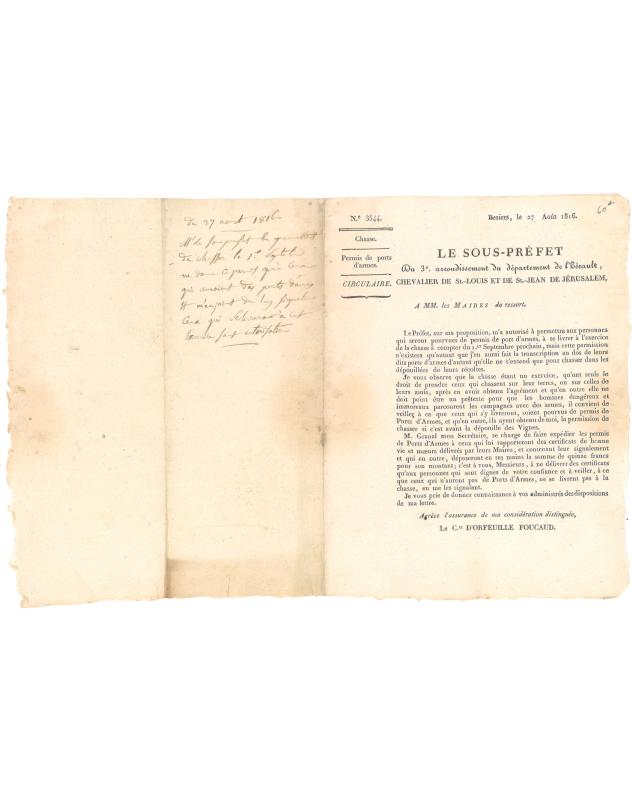 du 27 aout 1816
Mr le
de chasse le 1er
ne donc
qui auroient des ports d'armes
Et
Ceux qui
N.º 3544.
Beziers, le 27 Août 1816.
60
Chasse.
Permis de ports
d'armes.
CIRCULAIRE.
LE SOUS-PRÉFET
Du 3e. arrondissement du département de l'Hérault,
CHEVALIER DE St.-LOUIS ET DE St.-JEAN DE JÉRUSALEM,
A MM. les MAIRES du ressort.
Le Préfet, sur ma proposition, m'a autorisé à permettre aux personnes
qui seront pourvues de permis de port d'armes, à se livrer à l'exercice
de la chasse à compter du 1.er Septembre prochain, mais cette permission
n'existera qu'autant que j'en aurai fait la transcription au dos de leurs
dits ports d'armes et d'autant qu'elle ne s'entend que pour chasser dans les
dépouillées de leurs récoltes.
Je vous observe que la chasse étant un exercice, qu'ont seuls le
droit de prendre ceux qui chassent sur leur terres, ou sur celles de
leurs amis, après en avoir obtenu l'agrément et qu'en outre elle ne
doit point être un prétexte pour que les hommes dangéreux et
immoraux parcourent les campagnes avec des armes, il convient de
veiller à ce que ceux qui s'y livreront, soient pourvus de permis de
Ports d'Armes, et qu'en outre, ils ayent obtenu de moi, la permission de
chasser si c'est avant la dépouille des Vignes.
M. Granal mon Secrétaire, se charge de faire expédier les permis
de Ports d'Armes à ceux qui lui rapporteront des certificats de bonne
vie et mœurs délivrés par leurs Maires; et contenant leur signalement
et qui en outre, déposeront en ses mains la somme de quinze francs
pour son montant; c'est à vous, Messieurs, à ne délivrer des certificats
qu'aux personnes qui sont dignes de votre confiance et à veiller, à ce
que ceux qui n'auront pas de Ports d'Armes, ne se livrent pas à la
chasse, en me les signalant.
Je vous prie de donner connaissance à vos administrés des dispositions
de ma lettre.
Agréez l'assurance de ma considération distinguée,
Le C.te D'ORFEUILLE FOUCAUD.